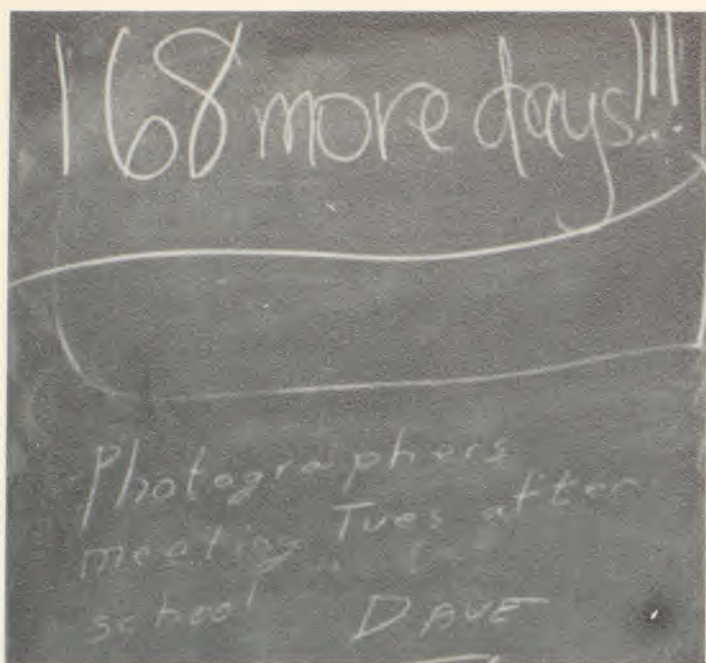 168 more days!!!
Photographers
meeting Tues after
school DAVE